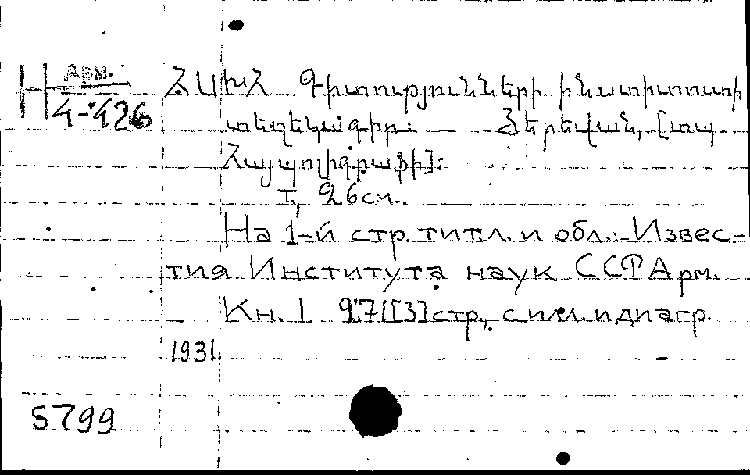 Н Арм.
4-426
ՀՍԽՀ Գիտությունների ինստիտուտի
տեղեկագիր. — Յերեվան, [տպ.
Հայպոլիգրաֆի]:
I, 26см.
На 1-й стр. титл. и обл.: Извес-
тия Института наук ССР Арм.
Кн. 1 97[[3] стр., с илл. и диагр.
1931.
5799